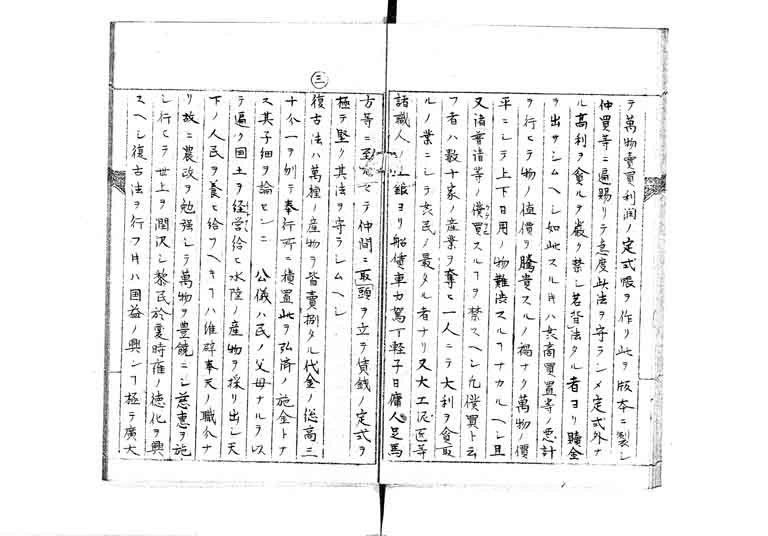 テ萬物賣買利潤ノ定式帳ヲ作リ此ヲ版本ニ製シ
仲買等ニ遍賜リテ急度此法ヲ守ランメ定式外ナ
ル高利ヲ貪ルヲ嚴ク禁シ若背法タル者ヨリ贖金
ヲ出サシムヘシ如此スルキハ奸商買置等ノ悪計
ヲ行ヒテ物ノ値價ヲ騰貴スルノ禍ナク萬物ノ價
平ニシテ上下日用ノ物難渋スルヿナカルヘシ且
又諸普請等ノ償買スルヿヲ禁スヘシ凡償買ト云
フ者ハ數十家ノ産業ヲ奪ヒ一人ニテ大利ヲ貪取
ルノ業ニシテ奸民ノ最タル者ナリ又大工泥匠等
諸職人ノ銀ヨリ船賃車力駕丁軽子日傭人足馬
方等ニ至ルマテ仲間ニ取頭ヲ立テ賃銭ノ定式ヲ
極テ堅ク其法ヲ守ラシムヘシ
三
復古法ハ萬種ノ産物ヲ皆賣捌タル代金ノ総高三
十分一ヲ別テ奉行所ニ積置此ヲ弘済ノ施金トナ
ス其子細ヲ論センニ 公儀ハ民ノ父母ナルヲ以
テ遍ク国土ヲ経営給ヒ水陸ノ産物ヲ採リ出シ天
下ノ人民ヲ養ヒ給フヘキヿハ維辟奉天ノ職分ナ
リ故ニ農政ヲ勉強シテ萬物ヲ豊饒ニシ慈恵ヲ施
シ行ヒテ世上ヲ潤沢シ黎民於変時雍ノ徳化ヲ興
スヘシ復古法ヲ行フ片ハ国益ノ興ンヿ極テ廣大